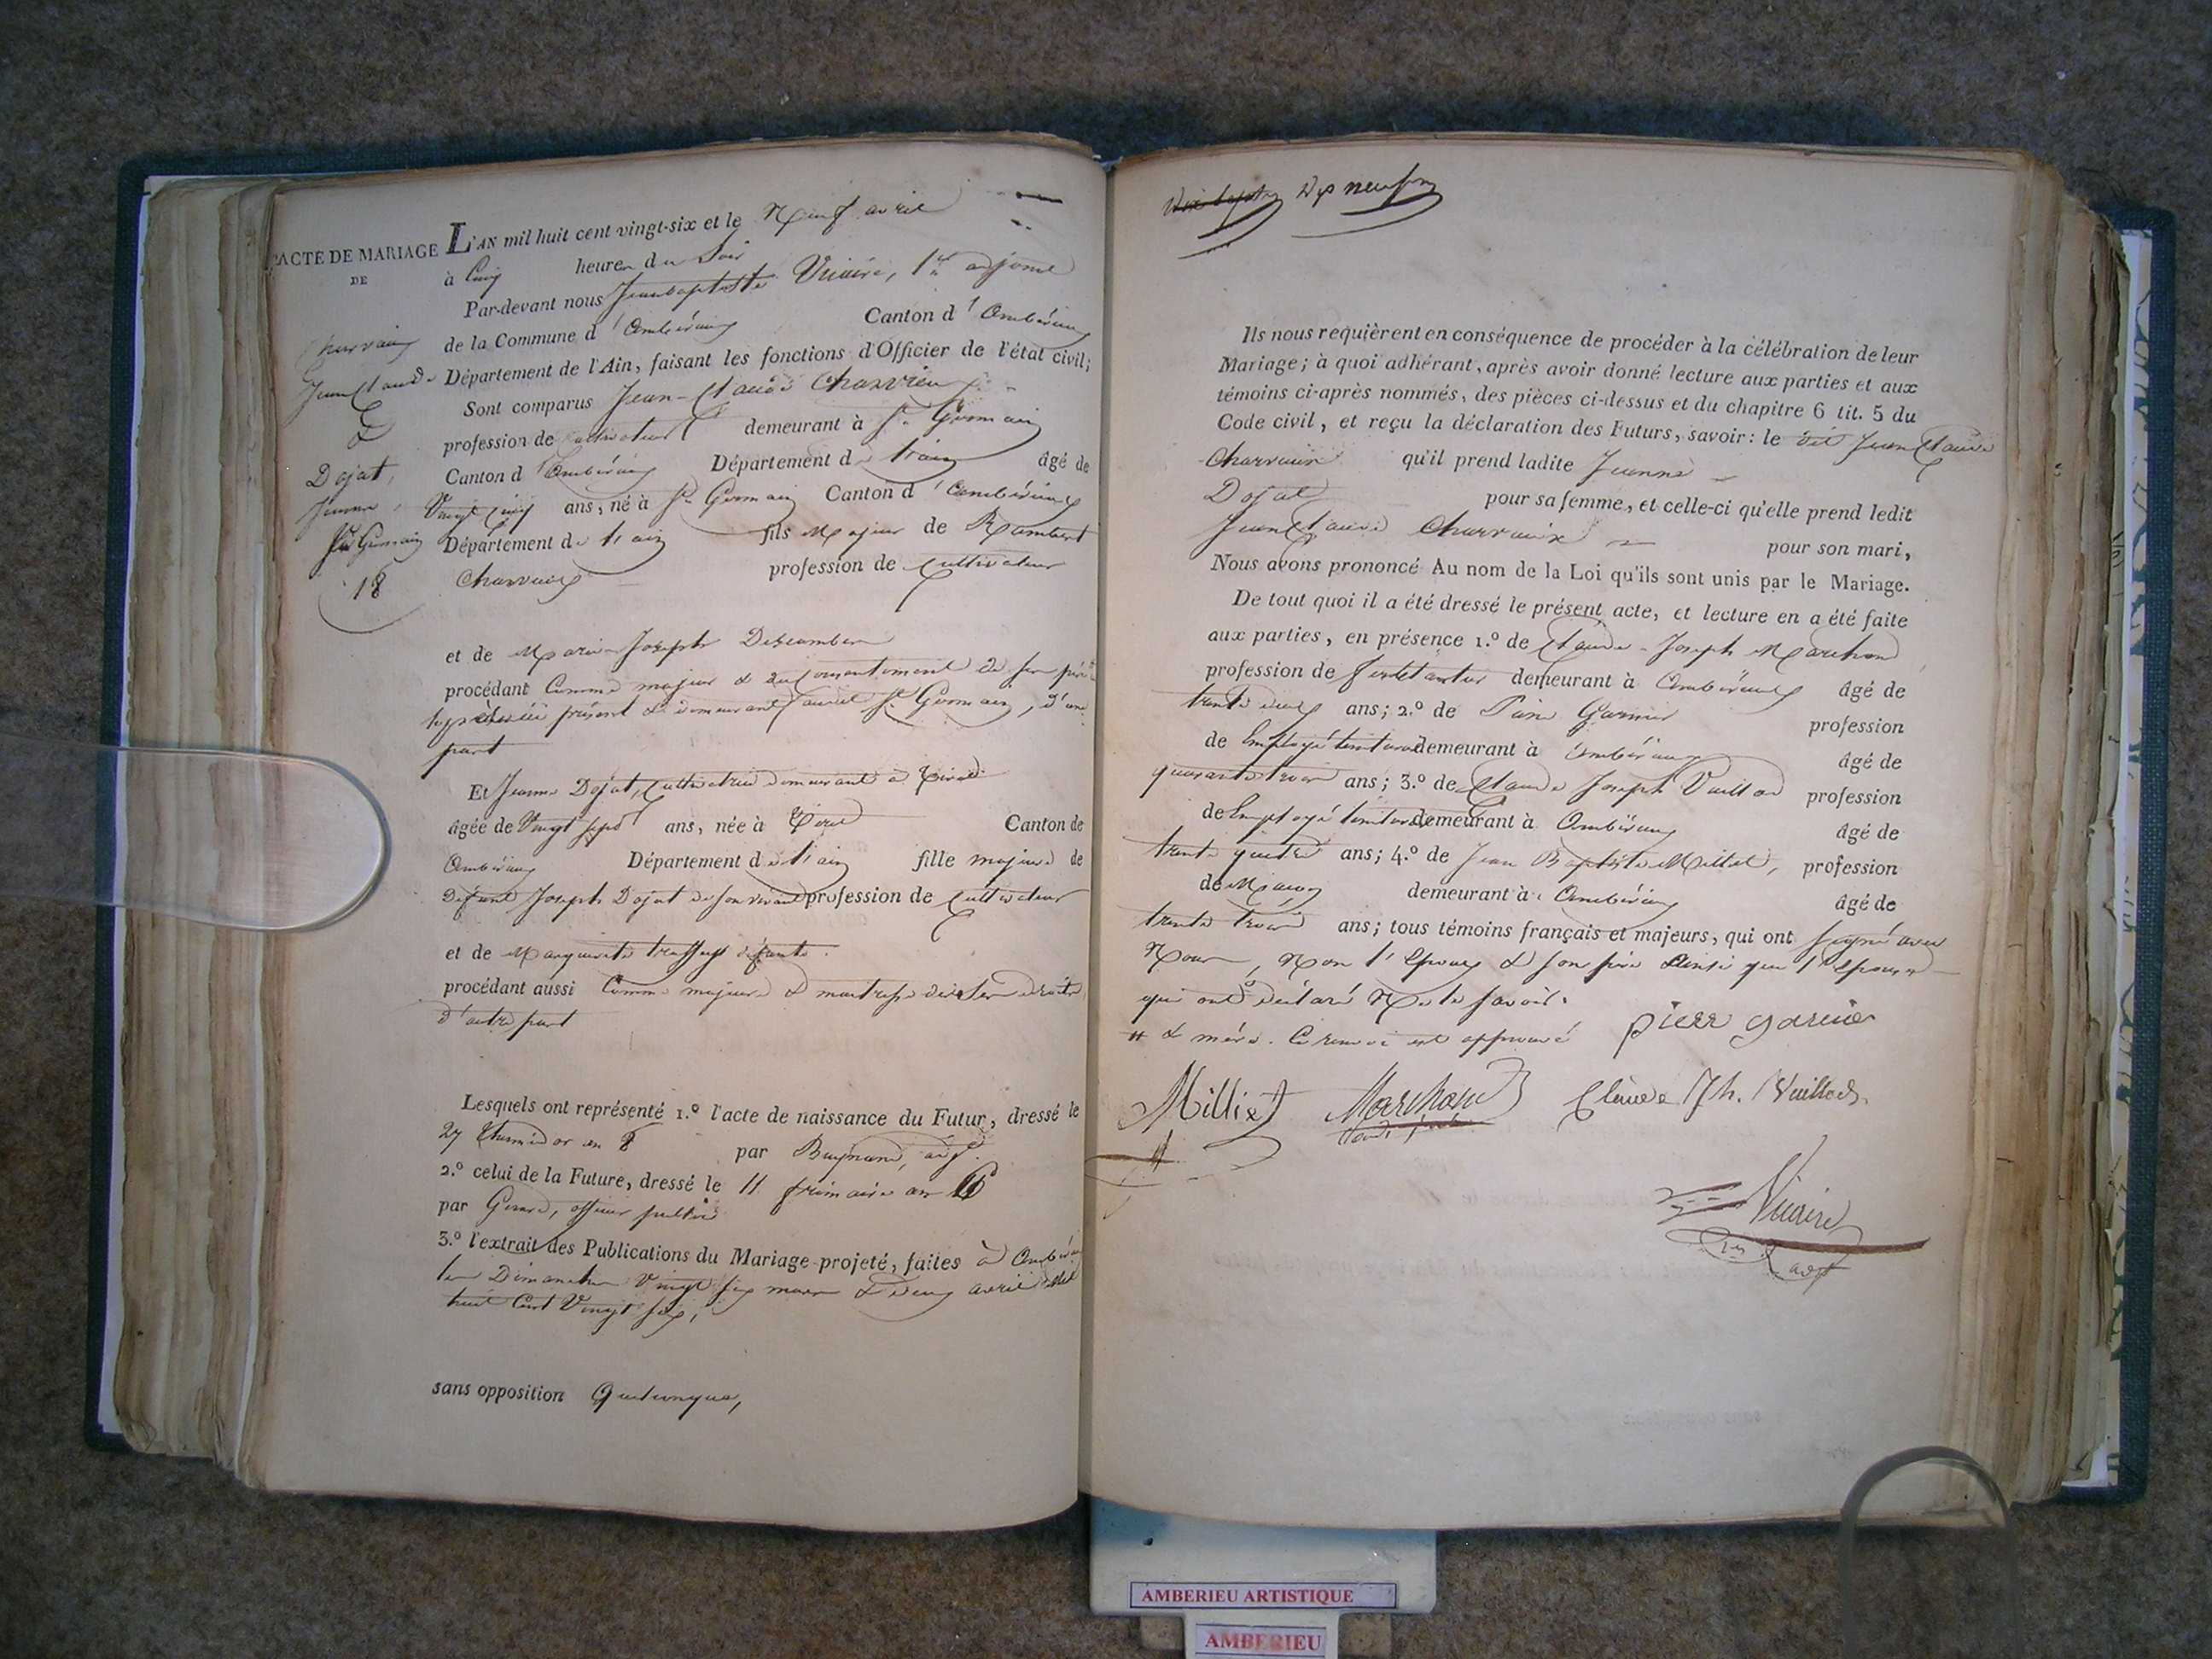 ACTE DE MARIAGE
DE
Jean Claude
&
Dojat,
Jeanne,
St Germain
18
L'AN mil huit cent vingt-six et le Neuf avril
à Cinq heures du Soir
Par-devant nous Jean baptiste Vicaire, 1er adjoint
de la Commune d'Ambérieux Canton d'Ambérieux
Département de l'Ain, faisant les fonctions d'Officier de l'état civil;
Sont comparus Jean-Claude Charvieux
profession de Cultivateur demeurant à St Germain
Canton d'Ambérieux Département de l'ain âgé de
Vingt cinq ans, né à St Germain Canton d'ambérieux
Département de l'ain fils Majeur de Rambert
profession de Cultivateur
et de Marie Joseph
procédant Comme majeur & du consentement de son père
présent & demeurant St Germain, d'une
part
Et Jeanne Dojat, Cultivatrice demeurant à Tiret
âgée de Vingt sept ans, née à Tiret Canton de
Ambérieux Département de l'ain fille majeure de
défunt Joseph Dojat de son vivant profession de Cultivateur
et de Marguerite défunte.
procédant aussi Comme majeure & maitresse de ses droits
d'autre part
Lesquels ont représenté 1.º l'acte de naissance du Futur, dressé le
27 thermidor an 8 par adjt.
2.º celui de la Future, dressé le 11 frimaire an
par officier public
3.º l'extrait des Publications du Mariage projeté, faites à Ambérieux
les Dimanches Vingt six mars & deux avril Mil
huit Cent Vingt six,
sans opposition Quelconque,
Dix neuf
Ils nous requièrent en conséquence de procéder à la célébration de leur
Mariage; à quoi adhérant, après avoir donné lecture aux parties et aux
témoins ci-après nommés, des pièces ci-dessus et du chapitre 6 tit. 5 du
Code civil, et reçu la déclaration des Futurs, savoir: le dit Jean Claude
Charvieux qu'il prend ladite Jeanne
Dojat pour sa femme, et celle-ci qu'elle prend ledit
Jean Claude Charvieux pour son mari,
Nous avons prononcé Au nom de la Loi qu'ils sont unis par le Mariage.
De tout quoi il a été dressé le présent acte, et lecture en a été faite
aux parties, en présence 1.º de Claude-Joseph Marchand
profession de demeurant à Ambérieux âgé de
trente deux ans; 2.º de Garnier profession
de Employé demeurant à Ambérieux âgé de
quarante trois ans; 3.º de Claude Joseph Vuillod profession
de Employé demeurant à Ambérieux âgé de
trente quatre ans; 4.º de Jean Baptiste Milliet, profession
de Maçon demeurant à Ambérieux âgé de
trente trois ans; tous témoins français et majeurs, qui ont signé avec
Nous, Non l'Epoux & son père ainsi que l'Epouse
qui ont déclaré Ne le savoir.
# & mère. Ce renvoi est approuvé
pierr garnier
Milliet Marchand Claude Jh. Vuillod
Vicaire
1er adjt
AMBERIEU ARTISTIQUE
AMBERIEU